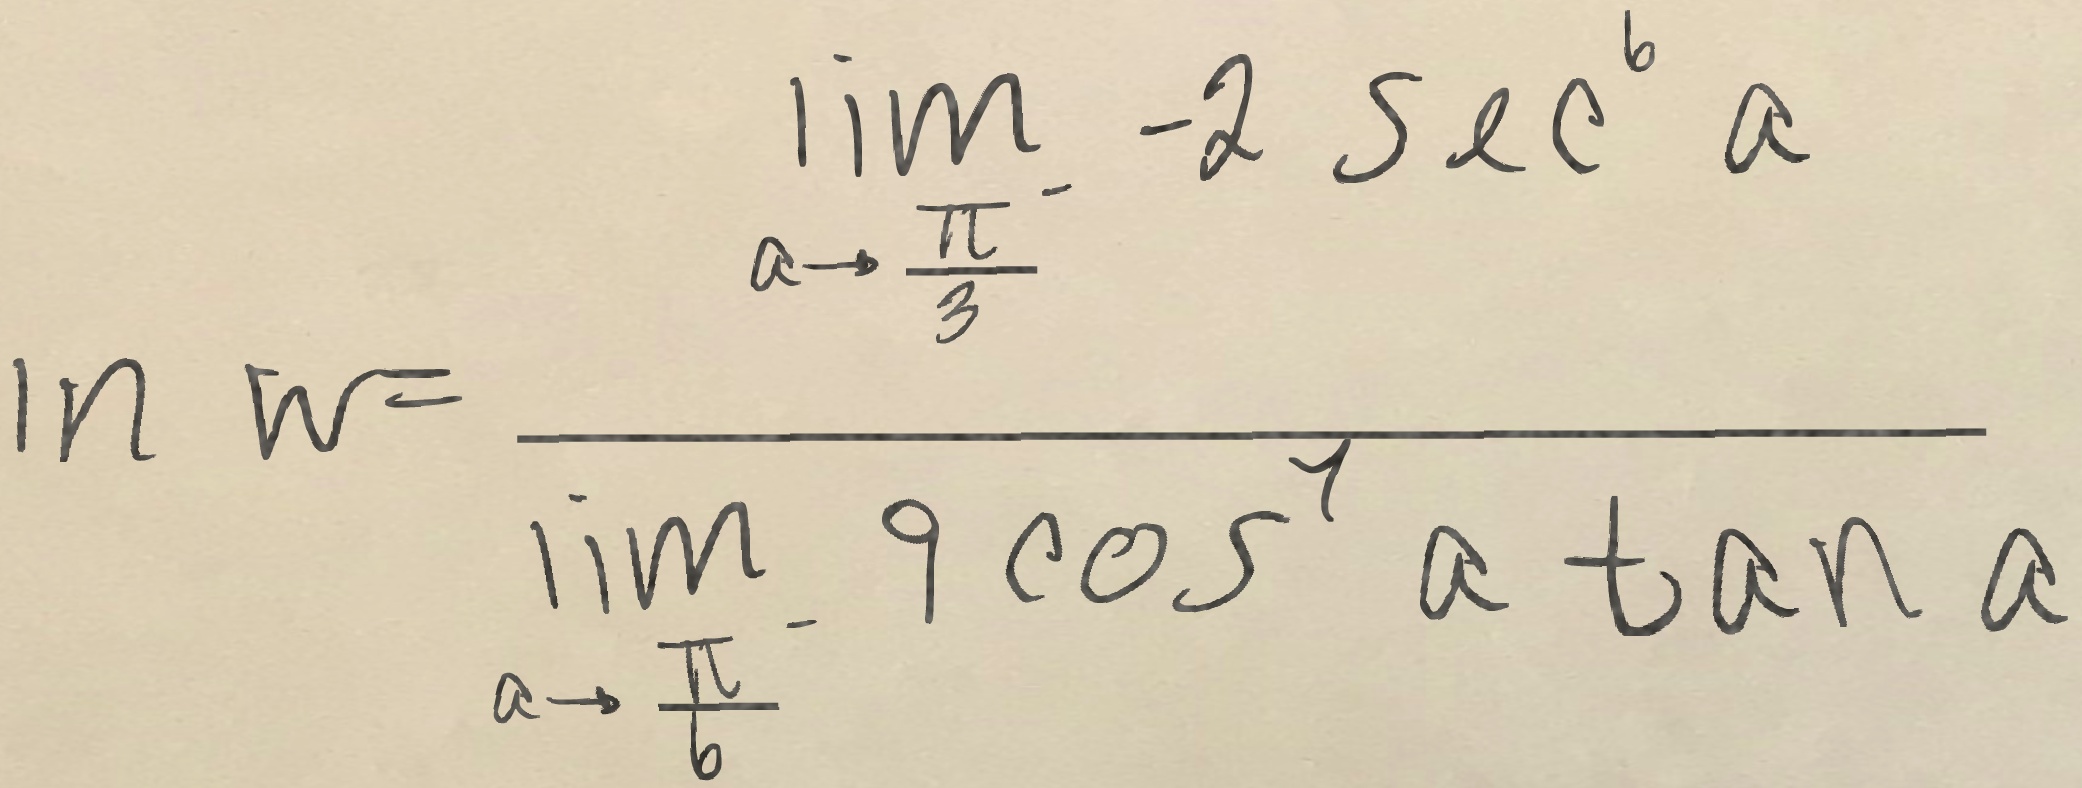 \ln w = \frac{\lim_{a \to \frac{\pi}{3}^{-}} -2 \sec^{6} a}{\lim_{a \to \frac{\pi}{6}^{-}} 9 \cos^{4} a \tan a}